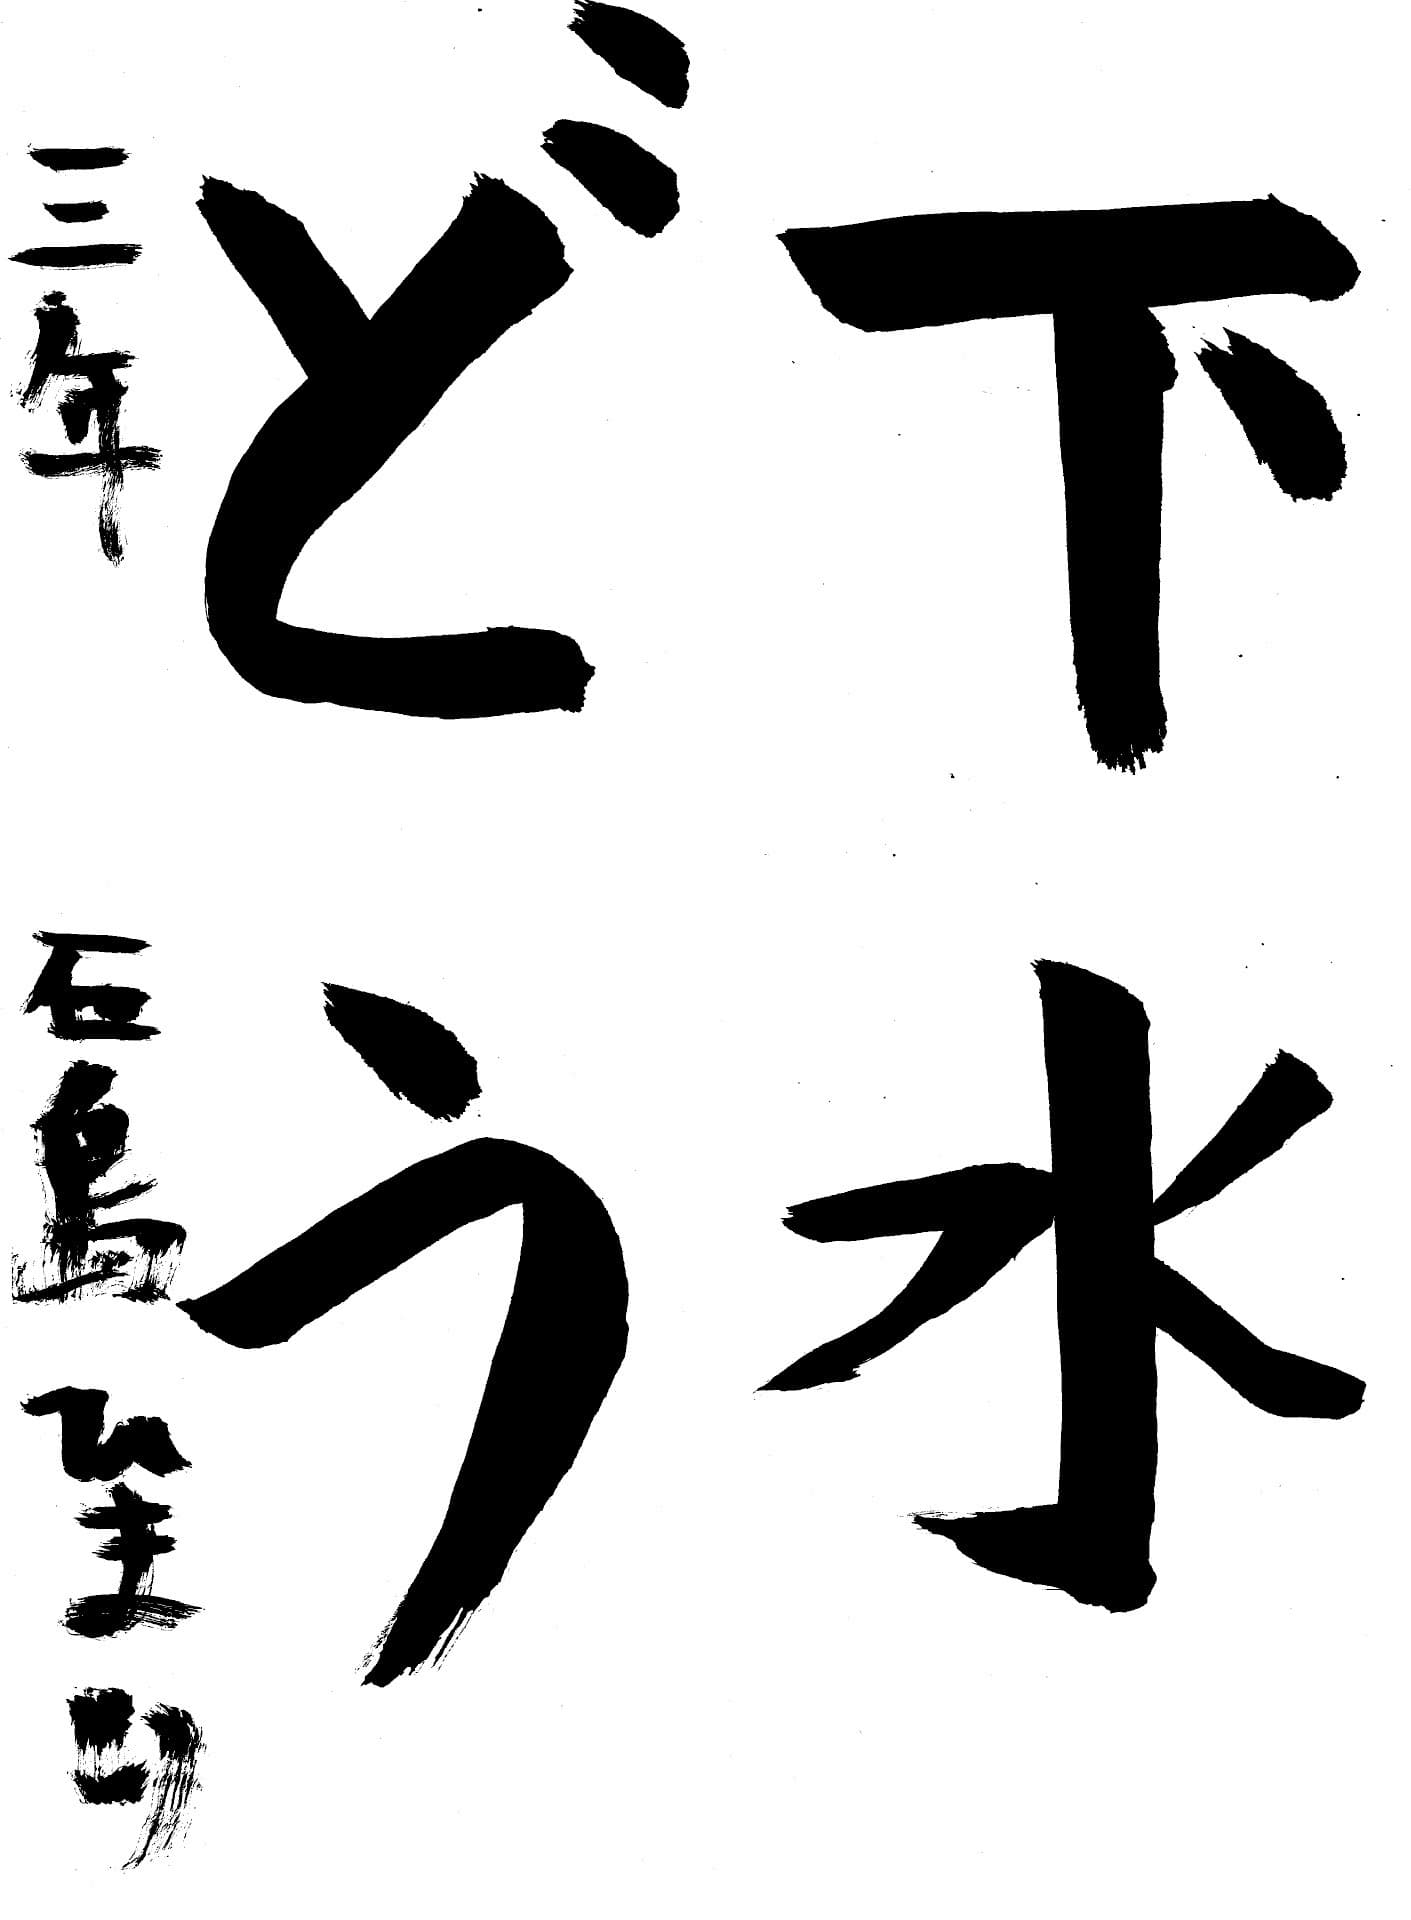 下水
どう
三年 石島 ひまり